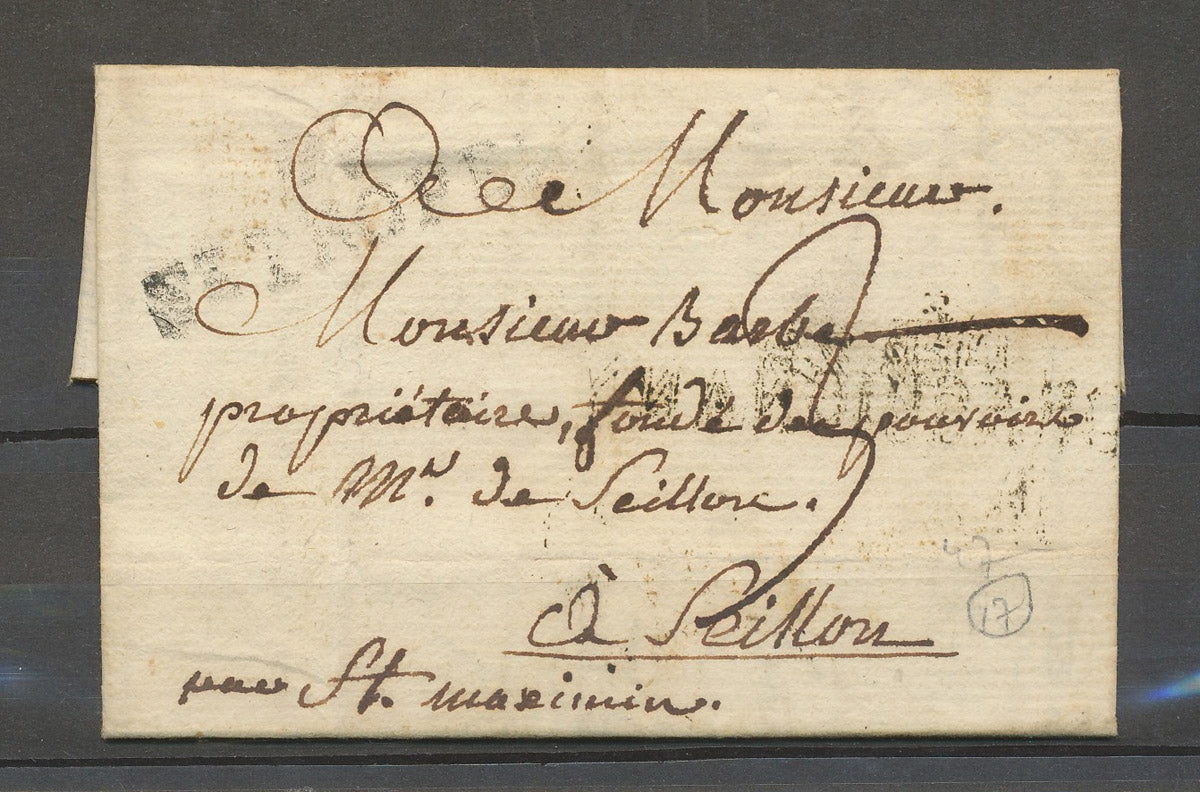 A Monsieur.
Monsieur Barbe
propriétaire, fondé de pouvoirs
de Mr. de Seillon.
à Seillon
par St. maximin.
17